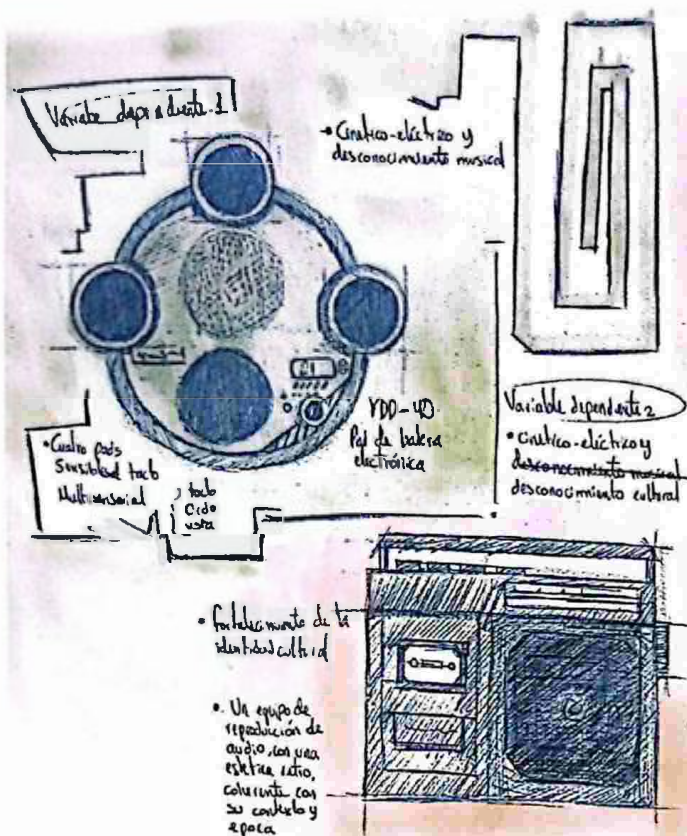 Variable dependiente 1
• Cinético-eléctrico y
desconocimiento musical
YDD-40
Pad de batería
electrónica
• Cuatro pads
Sensibles al tacto
Multisensorial
tacto
Oido
vista
Variable dependiente 2
• Cinético-eléctrico y
desconocimiento musical
desconocimiento cultural
• fortalecimiento de la
identidad cultural
• Un equipo de
reproducción de
audio, con una
estética retro,
coherente con
su contexto y
epoca